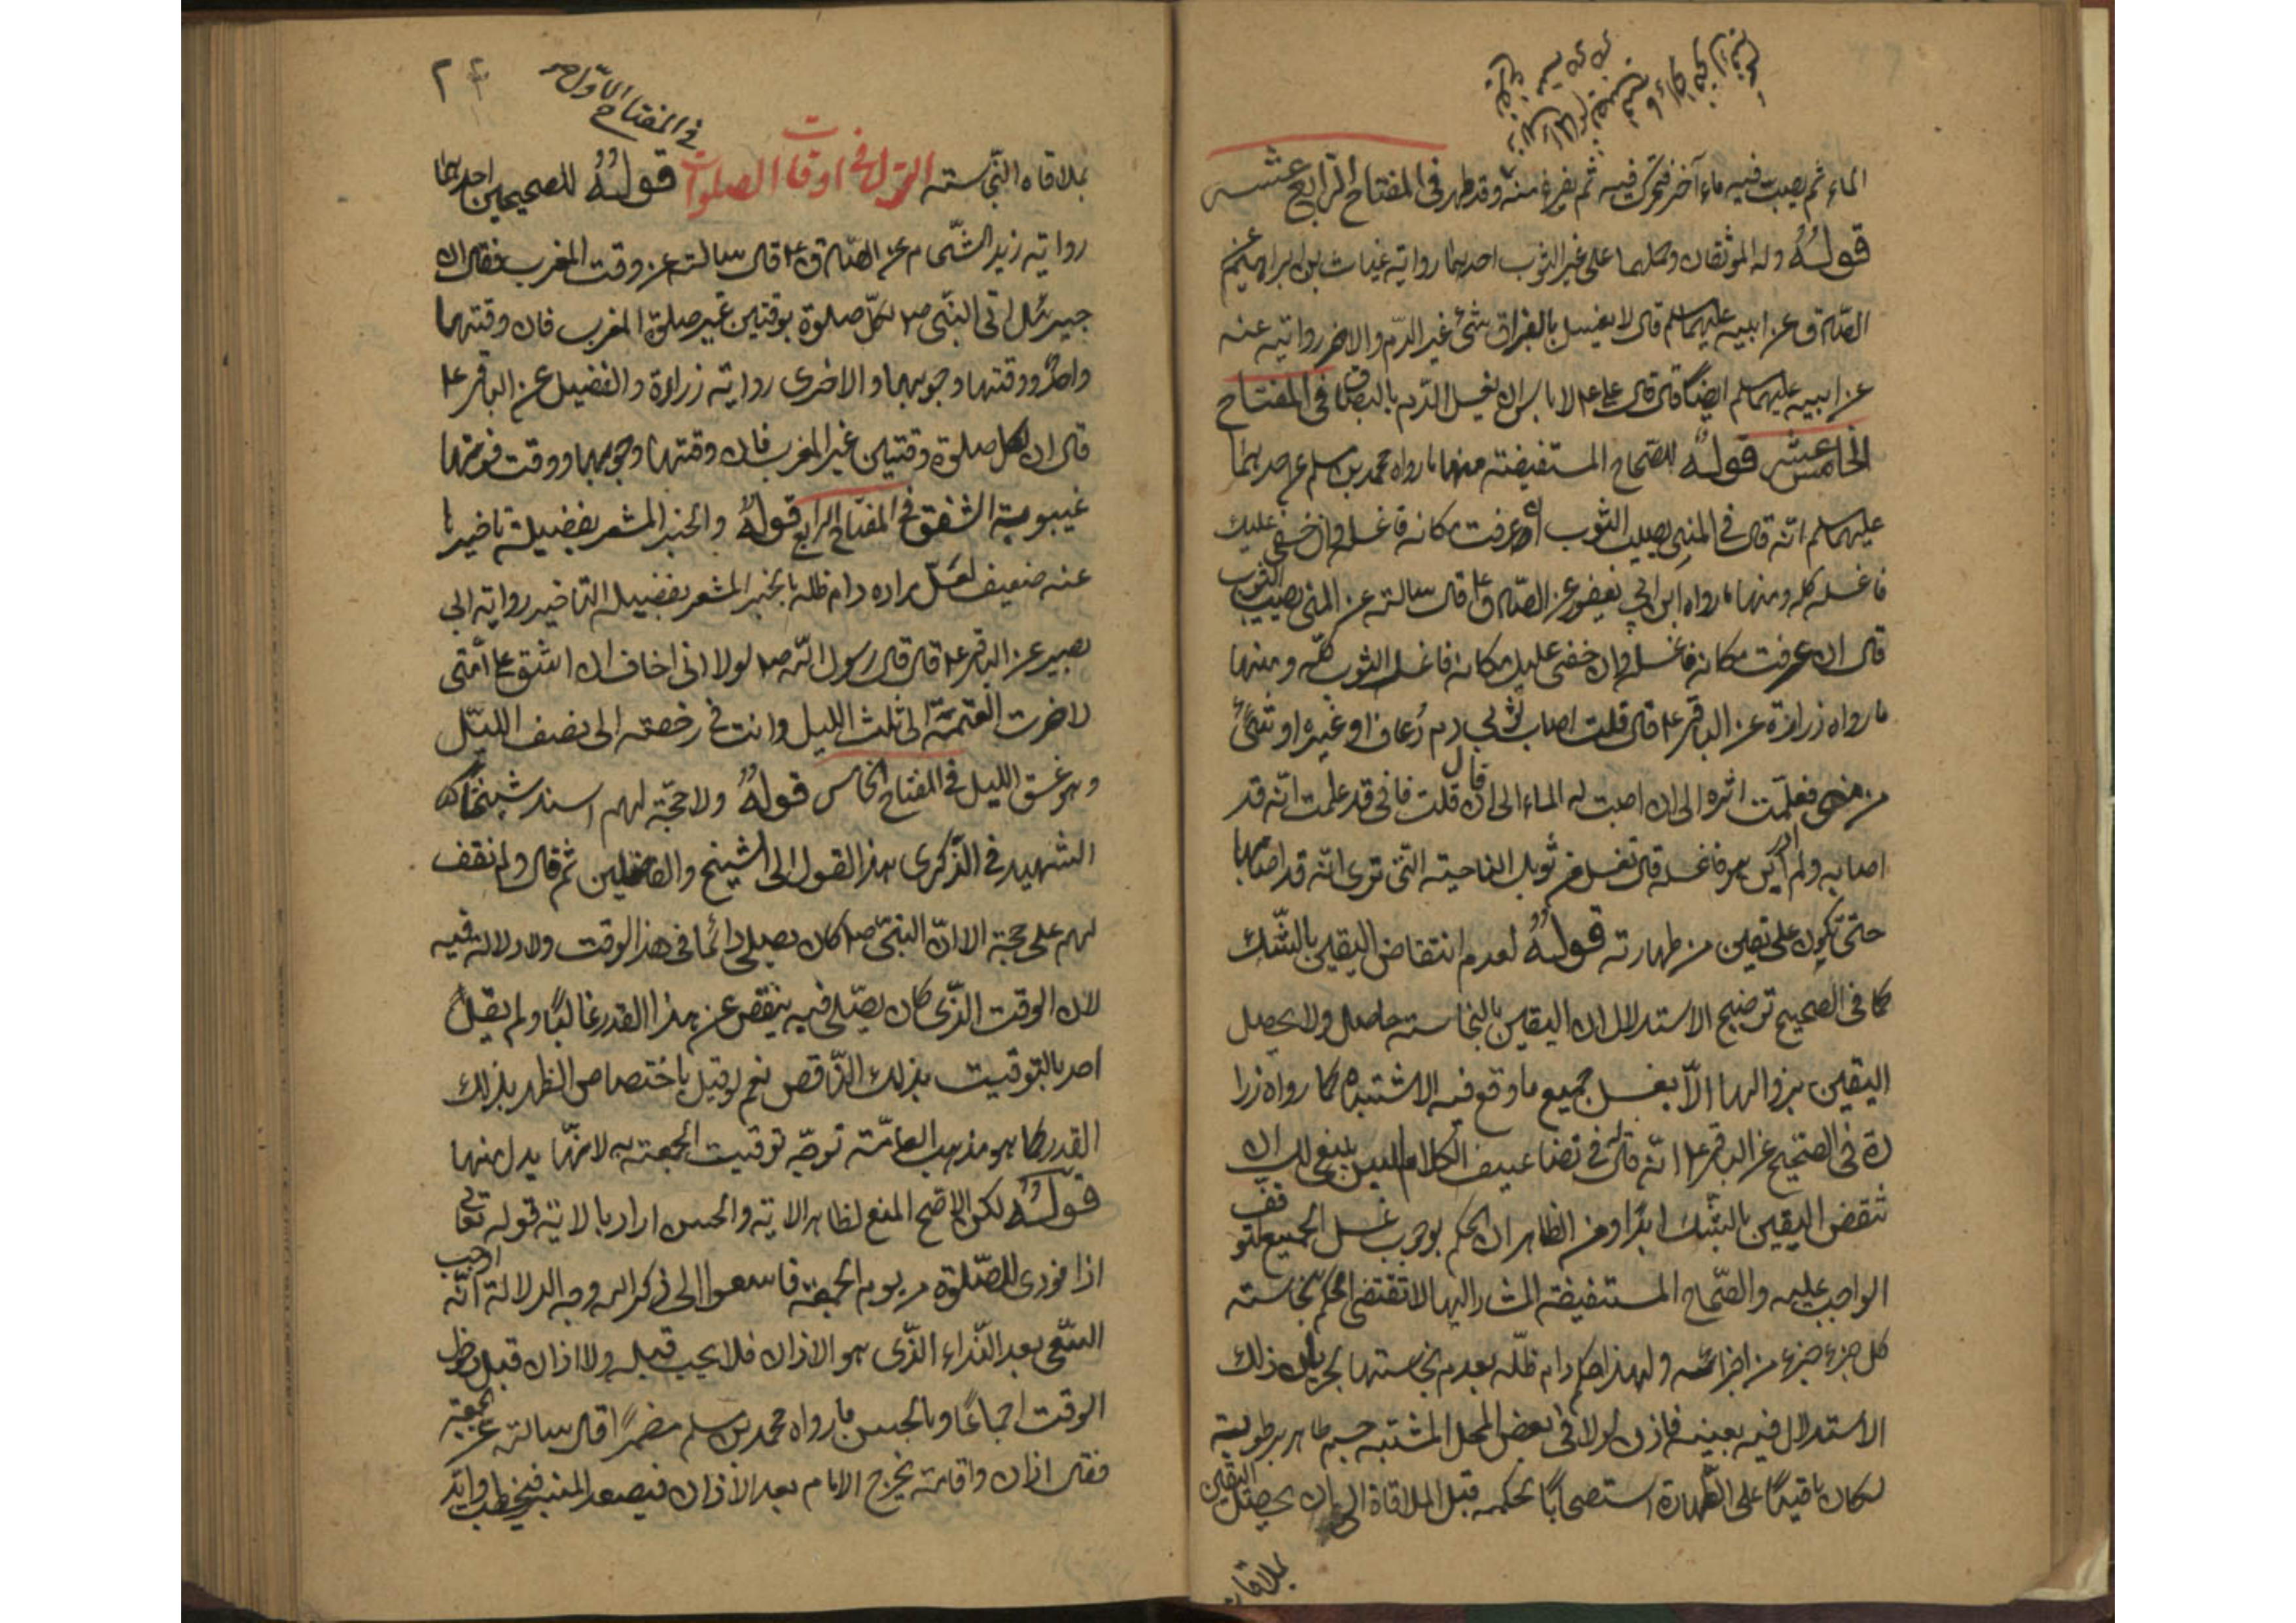 الماء ثم يصبّ فيه ماء آخر فتحرك فيه ثم يفرغ منه وقد طهر في المفتاح الرابع عشر
قولُهُ وله الموثقان وكلهما على غير الثوب احدهما رواية غياث بن ابراهيم عن
الصادق عن ابيه عليهما سلم قال لا يغسل بالبزاق شئ غير الدم والاخر رواية عنه
عن ابيه عليهما سلم ايضًا قال قال علي ع لا باس ان يغسل الدم بالبصاق في المفتاح
الخامس عشر قولُهُ للصحاح المستفيضة منها ما رواه محمد بن مسلم عن احدهما
عليهما سلم انّه قال في المني يصيب الثوب ان عرفت مكانه فاغسله وان خفي عليك
فاغسله كله ومنها ما رواه ابن ابي يعفور عن الصادق ع قال سالته عن المنى يصيب الثوب
قال ان عرفت مكانه فاغسله وان خفى عليك مكانه فاغسل الثوب كلّه ومنها
ما رواه زرارة عن الباقر ع قال قلت اصاب ثوبي دم رُعاف او غيره او شئ
من منى فعلّمت اثره الى ان اصبت له الماء الى ان قال قلت فانى قد علمت انّه قد
اصابه ولم ادر اين هو فاغسله قال تغسل من ثوبك الناحية التى ترى انّه قد اصابها
حتّى تكون على يقين من طهارته قولُهُ لعدم انتقاض اليقين بالشّك
كما فى الصحيح توضيح الاستدلال ان اليقين بالنجاسة حاصل ولا يحصل
اليقين بزوالها الّا بغسل جميع ما وقع فيه الاشتباه كما رواه زرا
رة فى الصّحيح عن الباقر ع انّه قال فى تضاعيف الكلام ليس ينبغى لك ان
تنقض اليقين بالشّك ابدًا ومن الظاهر ان الحكم بوجوب غسل الجميع لتوقف
الواجب عليه والصّحاح المستفيضة المشار اليها لا تقتضى الحكم بنجاسته
كل جزء جزء من اجزائه ولهذا حكم دام ظلّه بعدم نجاستها لجريان ذلك
الاستدلال فيه بعينه فاذن لو لاقى بعض المحل المشتبه جسم طاهر برطوبة
لكان باقيًا على الطّهارة استصحابًا لحكمه قبل الملاقاة الى ان يحصل اليقين
بملاقاة
٢٤
في المفتاح الاوّل
بملاقاة النّجاسة القول في اوقات الصلوات قولُهُ للصحيحين احدهما
رواية زيد الشّحام عن الصّادق ع قال سالته عن وقت المغرب فقال ان
جبرئيل اتى النّبى ص لكلّ صلوة بوقتين غير صلوة المغرب فان وقتها
واحد ووقتها وجوبها والاخرى رواية زرارة والفضيل عن الباقر ع
قال ان لكل صلوة وقتين غير المغرب فان وقتها وجوبها ووقت فوتها
غيبوبة الشفق في المفتاح الرابع قولُهُ والخبر المشعر بفضيلة تاخيرها
عنه ضعيف لعلّ مراده دام ظله بالخبر المشعر بفضيلة التاخير رواية ابى
بصير عن الباقر ع قال قال رسول اللّه ص لولا انى اخاف ان اشق على امّتى
لاخرت العتمة الى ثلث الليل وانت في رخصة الى نصف الليّل
وهو غسق الليل في المفتاح الخامس قولُهُ ولا حجّة لهم اسند شيخنا
الشهيد في الذّكرى هذا القول الى الشيخ والفاضلين ثم قال ولم نقف
لهم على حجة الا انّ النبّى ص كان يصلى دائما فى هذا الوقت ولا دلالة فيه
لان الوقت الذّى كان يصّلى فيه ينقص عن هذا القدر غالبًا ولم يقل
احد بالتوقيت بذلك النّاقص نعم لو قيل باختصاص الظهر بذلك
القدر كما هو مذهب العامّة توجّه توقيت الجمعة به لانّها بدل منها
قولُهُ لكن الاصّح المنع لظاهر الاية والحسن اراد بالاية قوله تعالى
اذا نودى للصّلوة من يوم الجمعة فاسعوا الى ذكر الله وجه الدلالة انّه اوجب
السّعى بعد النّداء الذّى هو الاذان فلا يجب قبله ولا اذان قبل دخول
الوقت اجماعًا وبالحسن ما رواه محمد بن مسلم مضمرًا قال سالته عن الجمعة
فقال اذان واقامة يخرج الامام بعد الأذان فيصعد المنبر فيخطب